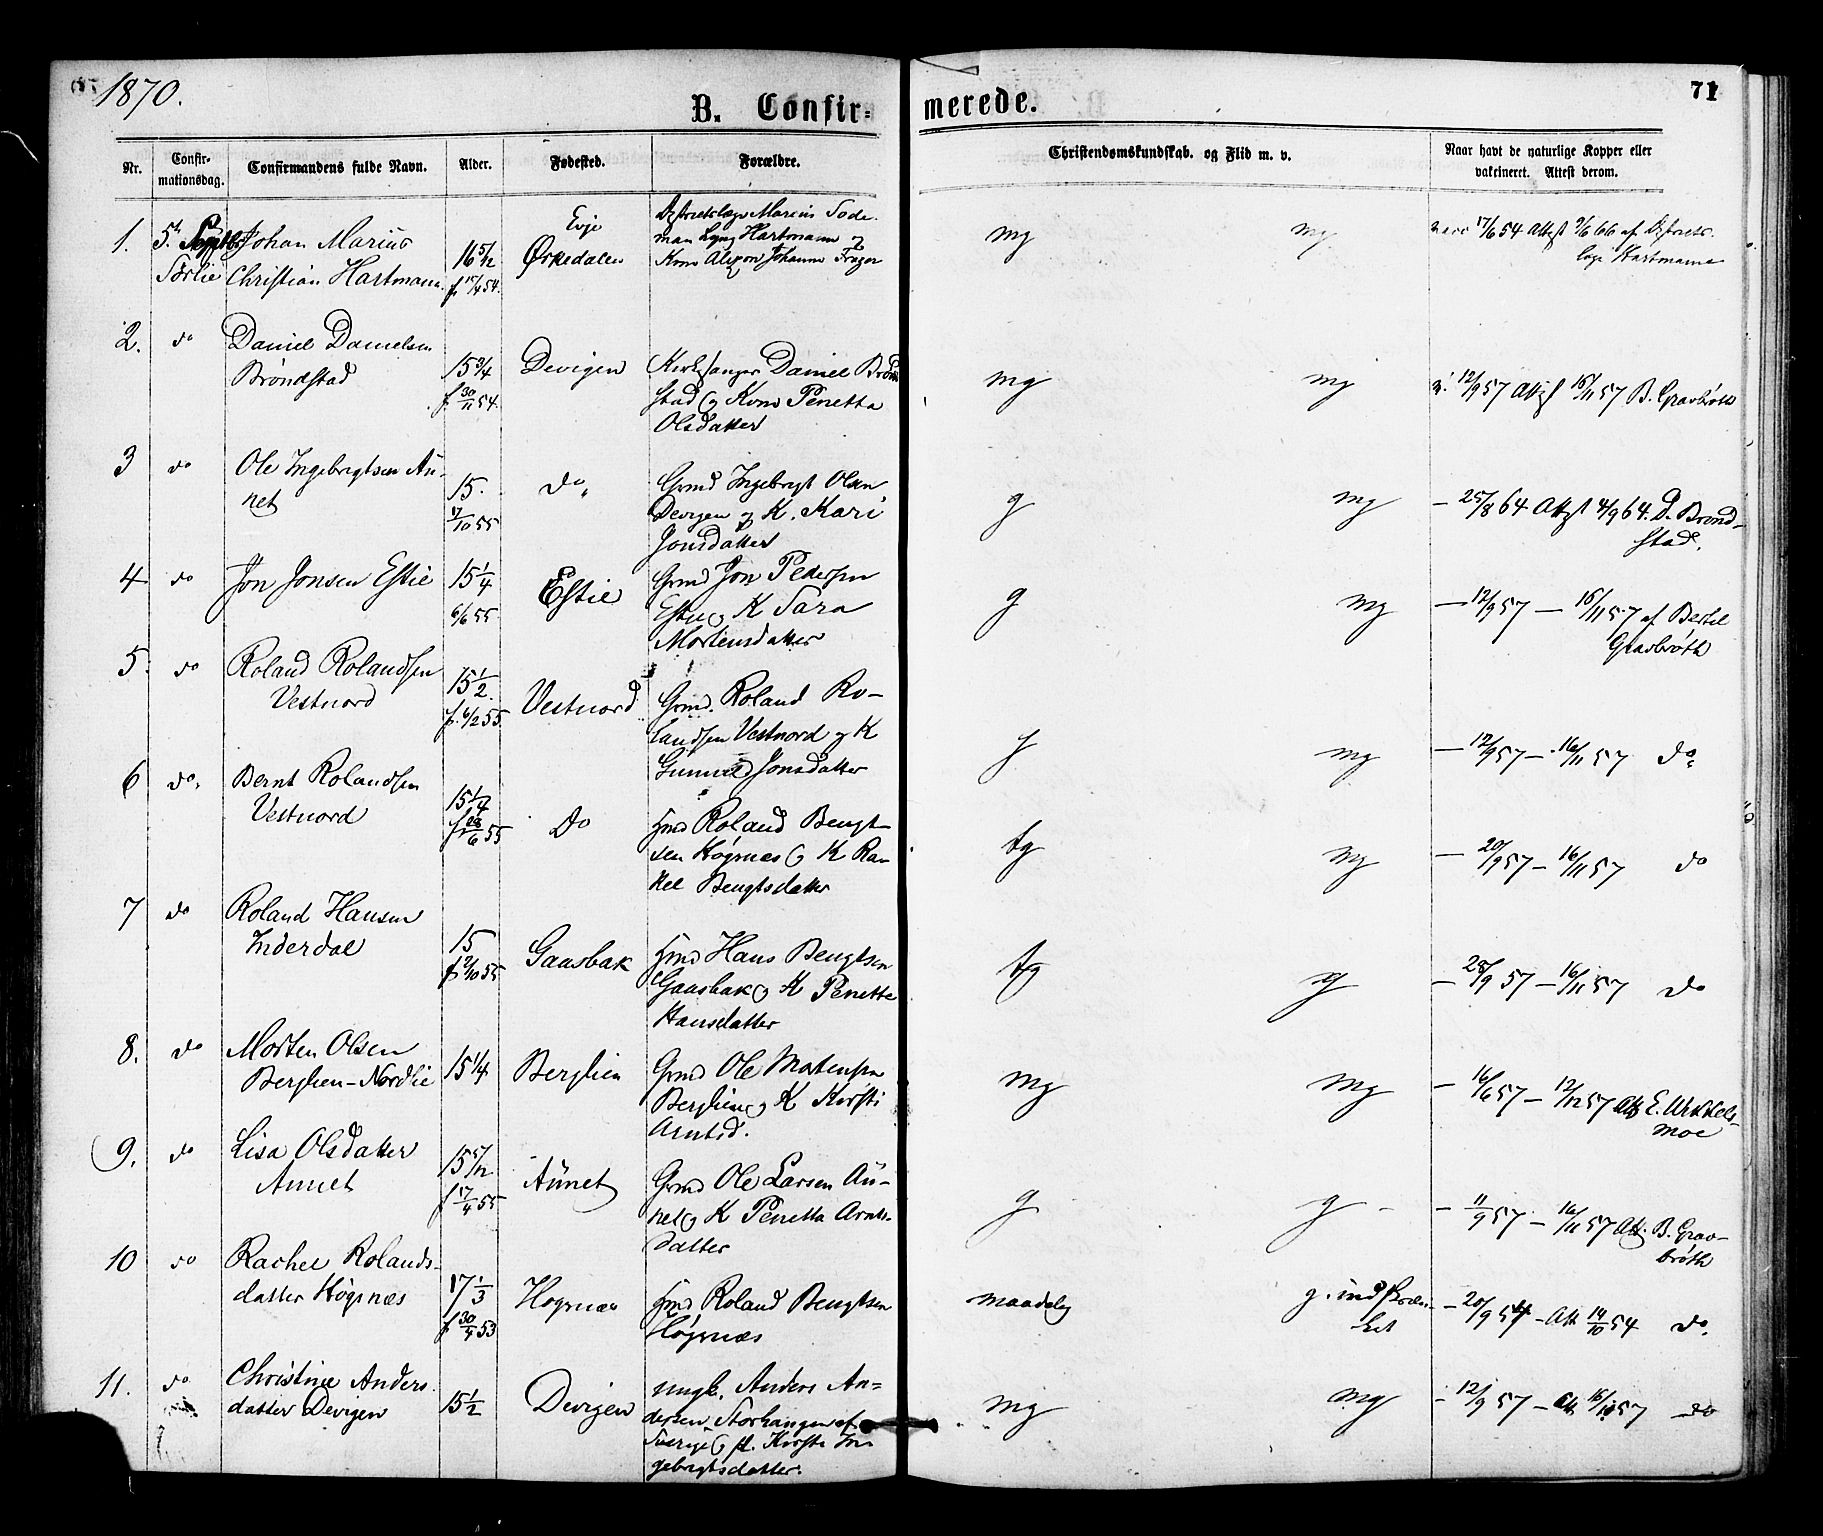 1870.
71
B. Confir-
merede.
Nr.
Confir-
mationsdag.
Confirmandens fulde Navn.
Alder.
Fødested.
Forældre.
Christendomskundskab. og Flid m. v.
Naar havt de naturlige Kopper eller
vakcineret. Attest derom.
1.
5t. Septbr
Sørlie
Johan Marius
Christian Hartmann.
16 5/12
f. 17/4 54.
Evje
Ørkedalen
Distrctslæge Marius Sode-
man Lyng Hartmann og
Kone Johanne
mg
mg
17/6 54 Attest 9/6 66 af Distrcts-
læge Hartmann
2.
do
Daniel Danielsen
Brøndstad
15 3/4
f. 30/11 54.
Devigen
Kirkesanger Daniel Brønd
stad og Kone Penetta
Olsdatter
mg
mg
v. 12/9 57 Attest 16/11 57 B. Gravbrøth
3
do
Ole Ingebrigtsen Au-
net
15.
17/10 55
do
Grmd Ingebrigt Olsen
Devigen og K. Kari
Jonsdatter
g
mg
- 25/8 64 Attest 4/9 64. D. Brønd-
stad.
4
do
Jon Jonsen Estie
15 1/4
6/6 55
Estie
Grmd Jon Pedersen
Estie og K Sara
Mortensdatter
g
mg
- 12/9 57 - 16/11 57 af Bertel
Gravbrøth
5.
do
Roland Rolandsen
Vestnord
15 1/2
f. 6/2 55.
Vestnord
Grmd. Roland Ro-
landsen Vestnord og K
Gunnild Jonsdatter
g
mg
- 12/9 57 - 16/11 57 do
6
do
Bernt Rolandsen
Vestnord
15 1/4
f. 28/6 55
Do
Hmd Roland Bengt-
sen Høgnæs og K Ra-
kel Bengtsdatter
tg
mg
- 20/9 57 - 16/11 57 do
7
do
Roland Hansen
Inderdal
15
f 2/10 55
Gaasbak
Hmd Hans Bengtsen
Gaasbak og K Penette
Hansdatter
tg
g
- 28/9 57 - 16/11 57 do
8.
do
Morten Olsen
Berglien-Nordlie
15 1/4
Berglien
Grmd Ole Mortensen
Berglien og K Kirsti
Arntsd.
mg
mg
- 16/6 57 - 12/12 57 Att E.
moe
9.
do
Lisa Olsdatter
Aunet
15 5/12
f 17/4 55
Aunet
Grmd Ole Larsen Au-
net og K Penetta Arnts-
datter
g
g -
- 11/9 57 - 16/11 57 Att. B. Grav-
brøth
10
do
Rachel Rolands-
datter Høgnæs
17 1/3
f 30/4 53
Høgnæs
Hmd Roland Bengtsen
Høgnæs
maadelig
g. indskræn-
ket
- 20/9 54 - Att 14/10 54 do.
11.
do
Christine Anders-
datter Devigen
15 1/2
Devigen
ungk. Anders An-
dersen Storhaugen af
Sverige og p. Kirsti In-
gebrigtsdatter.
mg
mg
- 12/9 57 - Att 16/11 57 do